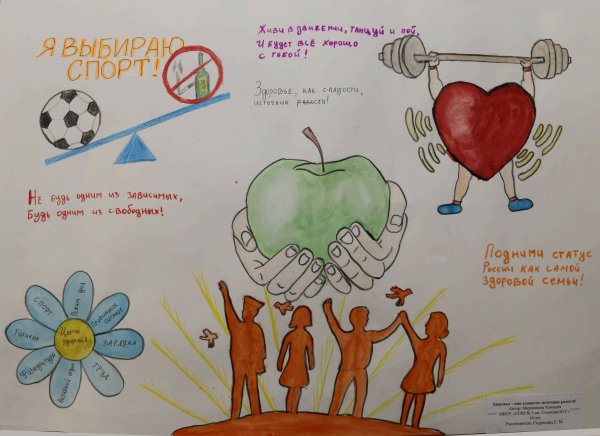 Я ВЫБИРАЮ
СПОРТ!
Живи в движении, танцуй и пой,
И будет всё хорошо
с тобой!
Здоровье, как сладости,
источник радости!
Не будь одним из зависимых,
Будь одним из свободных!
Подними статус
России как самой
здоровой семьи!
Цветок
здоровья
СПОРТ
Режим дня
Правильное
питание
ЗАРЯДКА
ТРУД
Физкультура
Гигиена
Здоровье – как сладости, источник радости!
Автор:
14 лет
Руководитель: